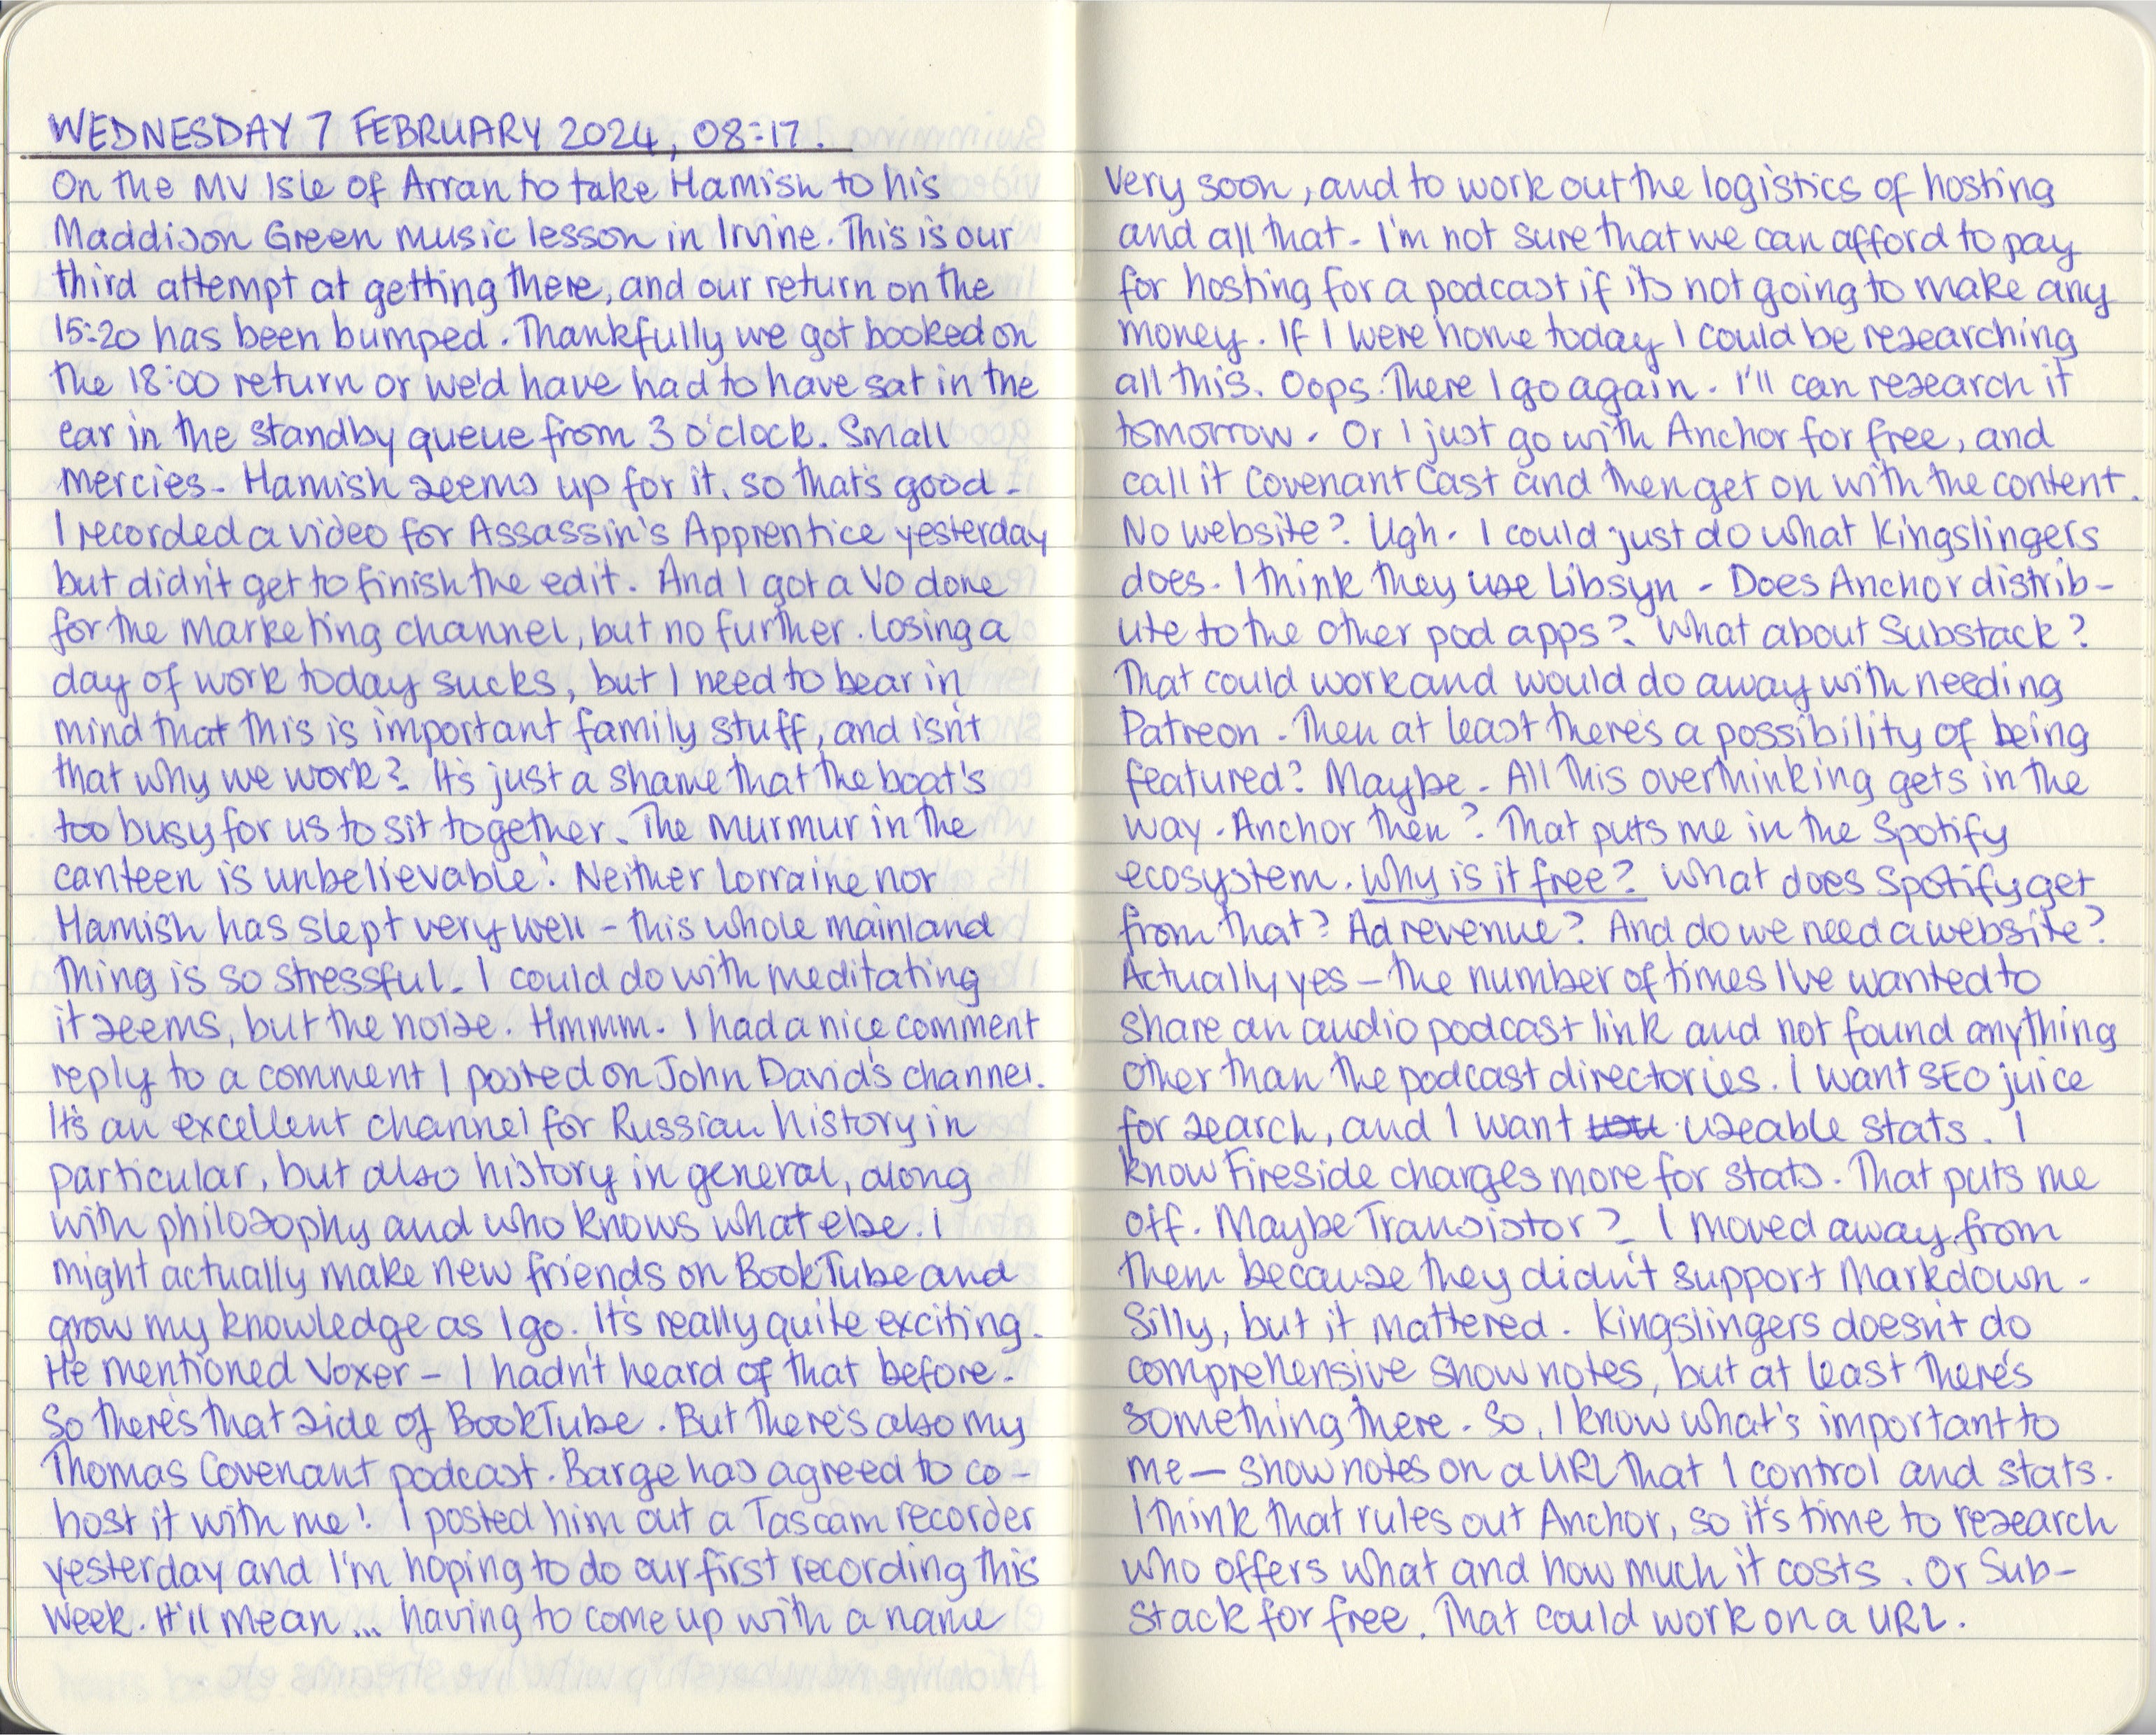 WEDNESDAY 7 FEBRUARY 2024, 08:17.
On the MV Isle of Arran to take Hamish to his
Maddison Green music lesson in Irvine. This is our
third attempt at getting there, and our return on the
15:20 has been bumped. Thankfully we got booked on
the 18:00 return or we'd have had to have sat in the
car in the standby queue from 3 o'clock. Small
mercies. Hamish seems up for it, so that's good.
I recorded a video for Assassin's Apprentice yesterday
but didn't get to finish the edit. And I got a VO done
for the marketing channel, but no further. Losing a
day of work today sucks, but I need to bear in
mind that this is important family stuff, and isn't
that why we work? It's just a shame that the boat's
too busy for us to sit together. The murmur in the
canteen is unbelievable! Neither Lorraine nor
Hamish has slept very well – this whole mainland
thing is so stressful. I could do with meditating
it seems, but the noise. Hmmm. I had a nice comment
reply to a comment I posted on John David's channel.
It's an excellent channel for Russian history in
particular, but also history in general, along
with philosophy and who knows what else. I
might actually make new friends on BookTube and
grow my knowledge as I go. It's really quite exciting.
He mentioned Voxer – I hadn't heard of that before.
So there's that side of BookTube. But there's also my
Thomas Covenant podcast. Barge has agreed to co-
host it with me! I posted him out a Tascam recorder
yesterday and I'm hoping to do our first recording this
week. It'll mean... having to come up with a name
very soon, and to work out the logistics of hosting
and all that. I'm not sure that we can afford to pay
for hosting for a podcast if its not going to make any
money. If I were home today I could be researching
all this. Oops. There I go again. I'll can research it
tomorrow. Or I just go with Anchor for free, and
call it Covenant Cast and then get on with the content.
No website? Ugh. I could just do what Kingslingers
does. I think they use Libsyn. Does Anchor distrib-
ute to the other pod apps? What about Substack?
That could work and would do away with needing
Patreon. Then at least there's a possibility of being
featured? Maybe. All this overthinking gets in the
way. Anchor then? That puts me in the Spotify
ecosystem. Why is it free? What does Spotify get
from that? Ad revenue? And do we need a website?
Actually yes – the number of times I've wanted to
share an audio podcast link and not found anything
other than the podcast directories. I want SEO juice
for search, and I want useable stats. I
know Fireside charges more for stats. That puts me
off. Maybe Transistor? I moved away from
them because they didn't support Markdown.
Silly, but it mattered. Kingslingers doesn't do
comprehensive show notes, but at least there's
something there. So, I know what's important to
me – show notes on a URL that I control and stats.
I think that rules out Anchor, so it's time to research
who offers what and how much it costs. Or Sub-
stack for free. That could work on a URL.